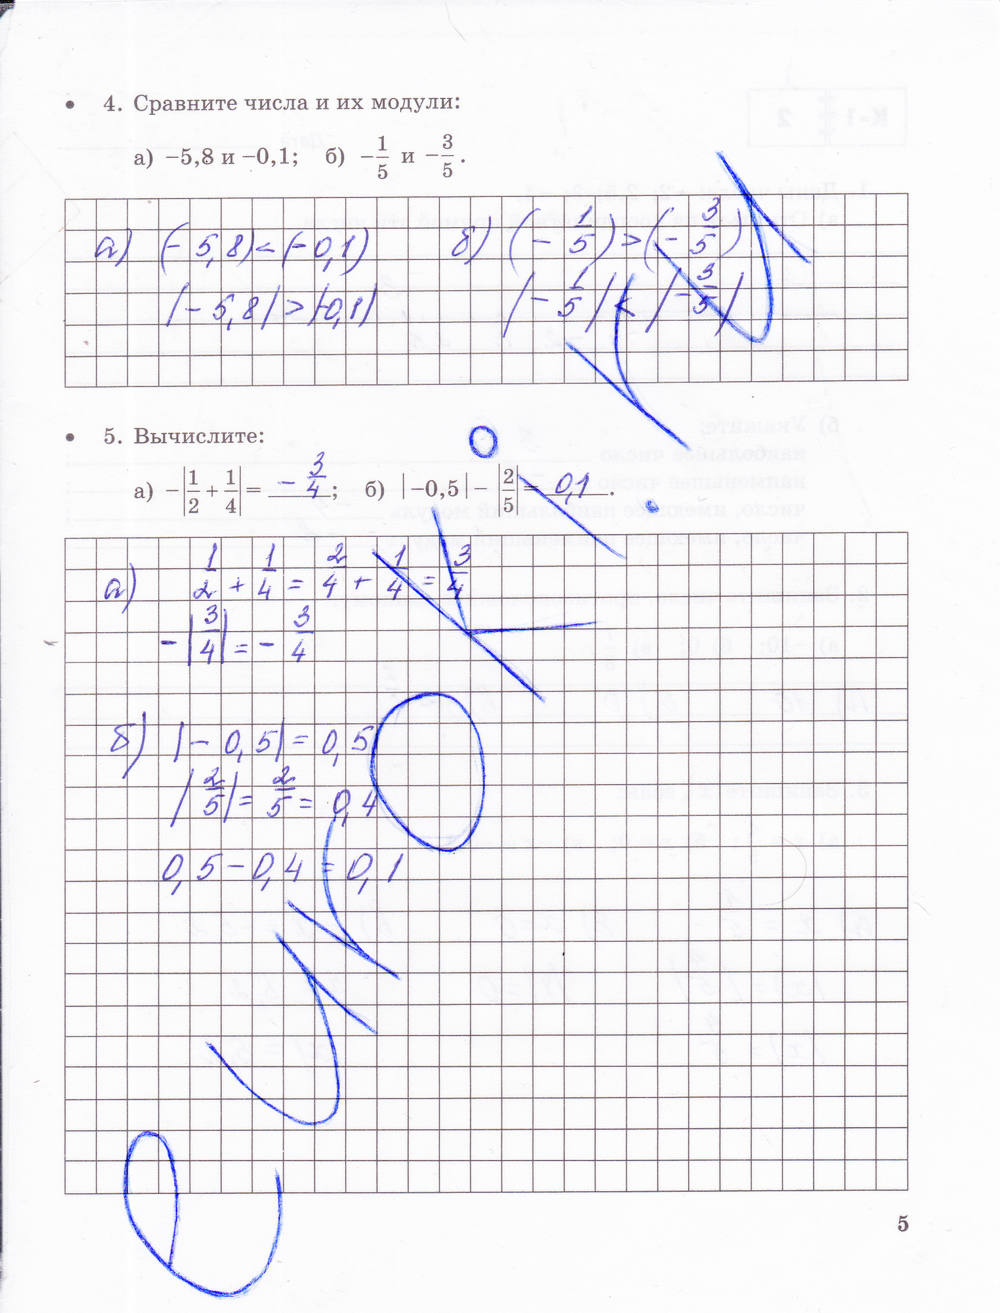 • 4. Сравните числа и их модули:
а) −5,8 и −0,1; б) −1/5 и −3/5.
а) (−5,8) < (−0,1) б) (−1/5) > (−3/5)
|−5,8| > |−0,1| |−1/5| < |−3/5|
• 5. Вычислите:
а) −|1/2 + 1/4| = −3/4; б) |−0,5| − |2/5| = 0,1.
а) 1/2 + 1/4 = 2/4 + 1/4 = 3/4
−|3/4| = −3/4
б) |−0,5| = 0,5
|2/5| = 2/5 = 0,4
0,5 − 0,4 = 0,1
5